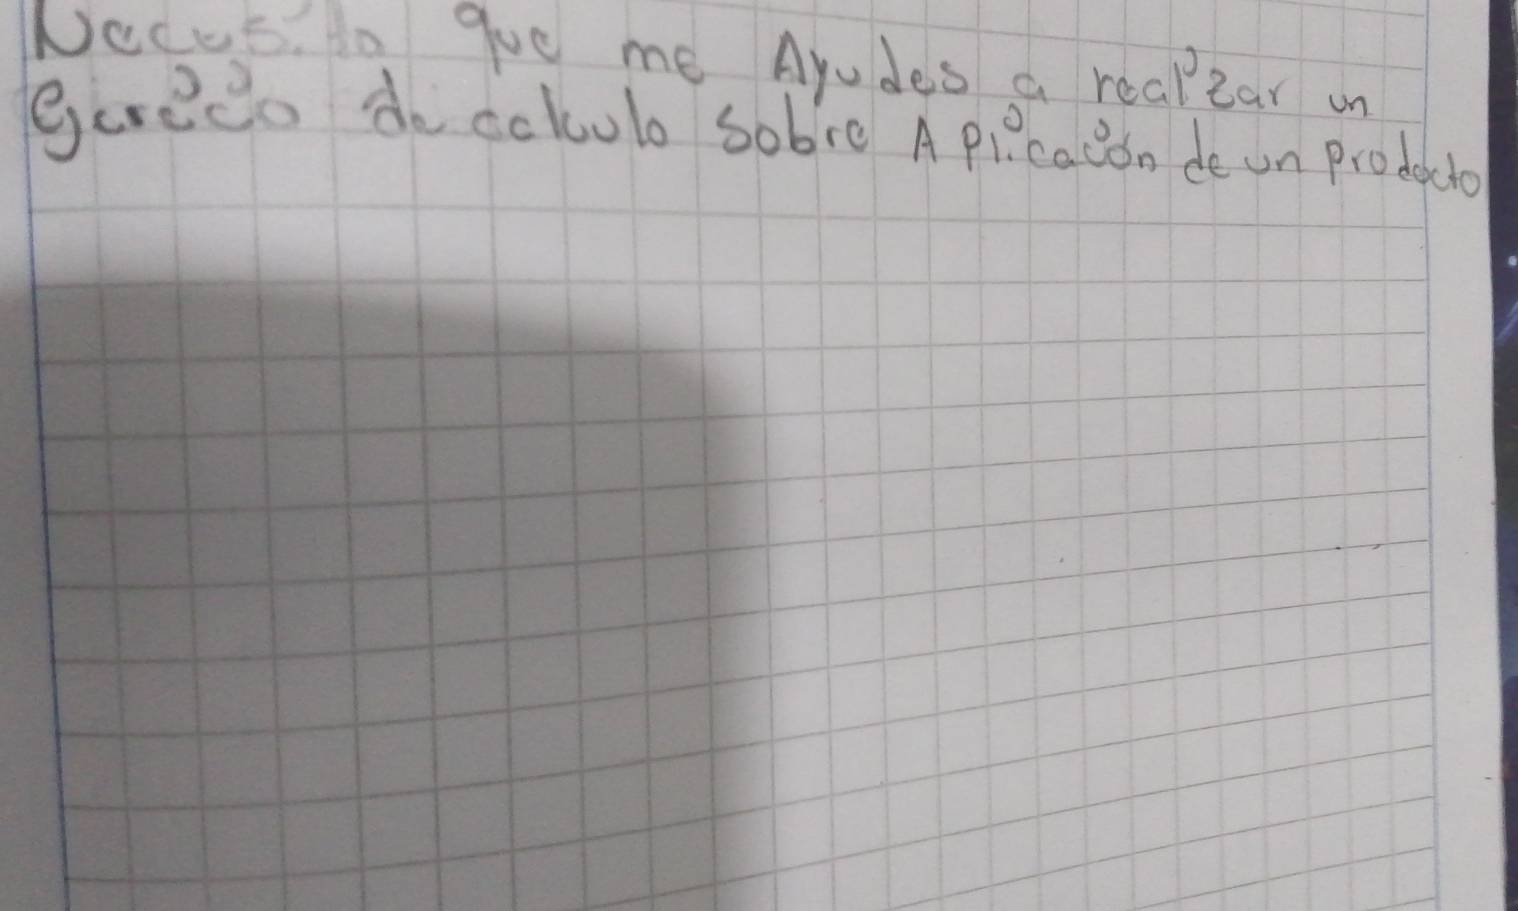 Necesito que me Ayudes a realizar un
ejercicio de calculo sobre Aplicación de un producto